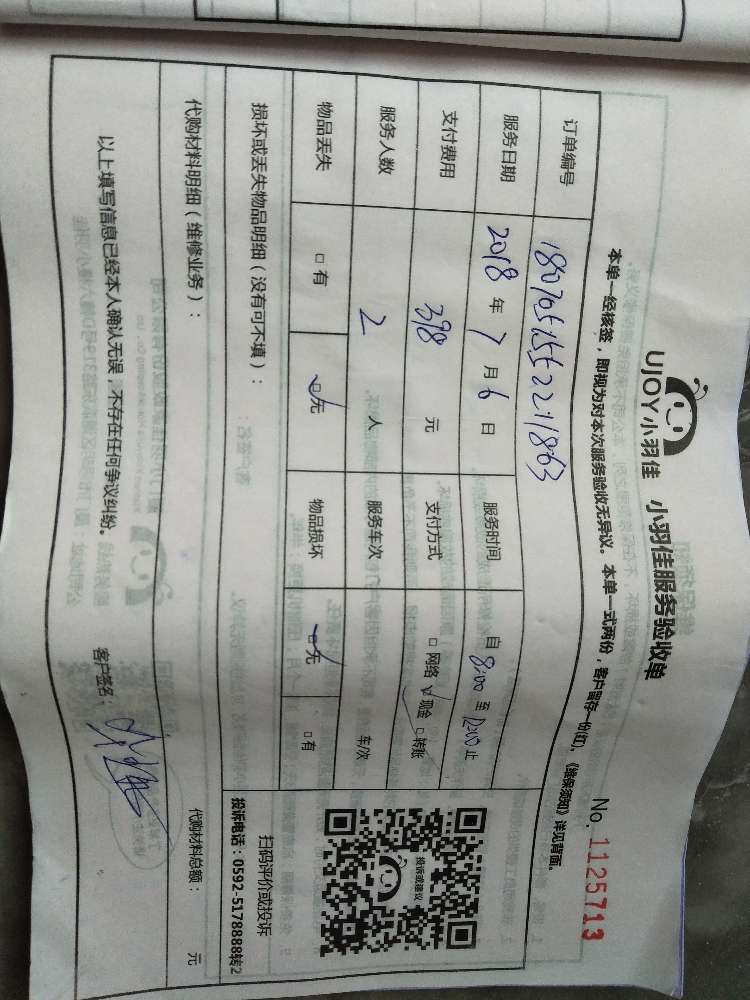 UJOY小羽佳 小羽佳服务验收单
No. 1125713
本单一经核签，即视为对本次服务验收无异议。本单一式两份，客户留存一份(红)，《维保须知》详见背面。
订单编号
服务日期 2018 年 7 月 6 日 服务时间 自 8:00 至 12:00 止
支付费用 398 元 支付方式 □网络 √现金 □转账
服务人数 2 人 服务车次 车/次
物品丢失 □有 □无 物品损坏 □无 □有
投诉或建议
扫码评价或投诉
投诉电话：0592-5178888转2
损坏或丢失物品明细（没有可不填）：
代购材料明细（维修业务）： 代购材料总额： 元
以上填写信息已经本人确认无误，不存在任何争议纠纷。 客户签名：